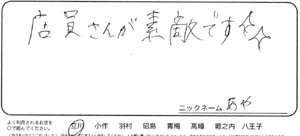 店員さんが素敵です☆☆
ニックネーム あや
よく利用されるお店を
○で囲んでください。
立川 小作 羽村 昭島 青梅 高幡 堀之内 八王子